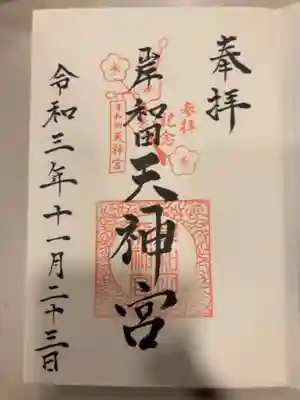 奉拝
参拝
記念
岸和田天神宮
岸和田
天神宮
令和三年十一月二十三日